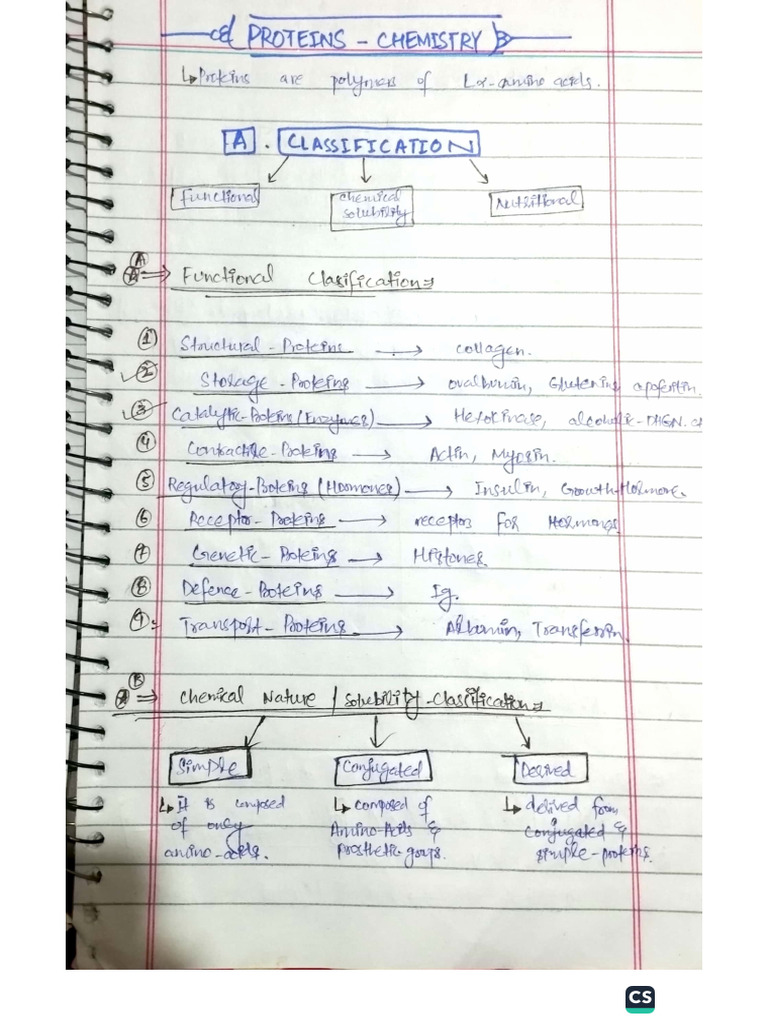 PROTEINS - CHEMISTRY
↳ Proteins are polymers of Lα-amino acids.
A . CLASSIFICATION
Functional
chemical solubility
Nutritional
A ⇒ Functional Clasification⇒
① Structural - Proteins → collagen.
② Storage - Proteins → ovalbumin, Glutening apoferitin.
③ Catalytic-Proteins (Enzymes) → Hexokinase, alcoholic-DHGN.
④ Contractile-Proteins → Actin, Myosin.
⑤ Regulatory-Proteins (Hormones) → Insulin, Growth-Hormone.
⑥ Receptor-Proteins → receptors for Hormones
⑦ Genetic-Proteins → Histones.
⑧ Defence-Proteins → Ig.
⑨ Transport-Proteins → Albumin, Transferrin.
B ⇒ Chemical Nature / Solubility-Classification⇒
Simple
Conjugated
Derived
↳ It is composed of only amino-acids.
↳ composed of Amino-Acids & Prosthetic-groups.
↳ derived from conjugated & simple-proteins.
CS